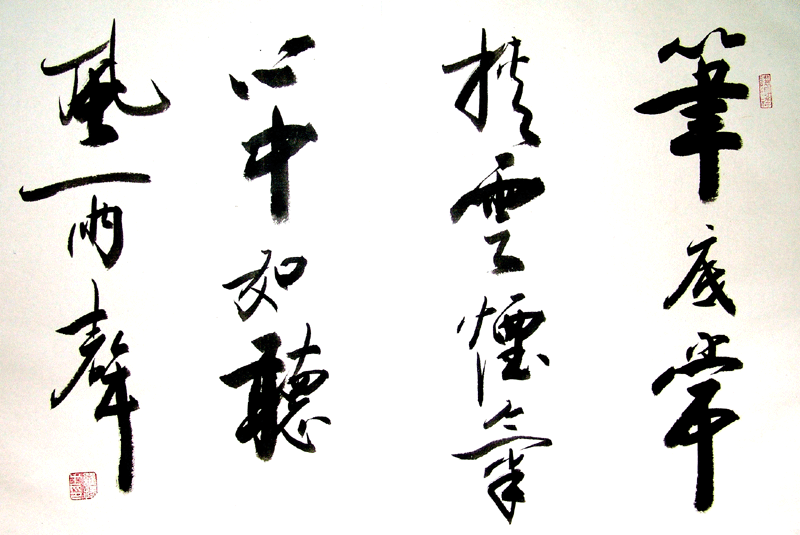 筆底常
挾雲煙氣
心中如聽
風雨聲